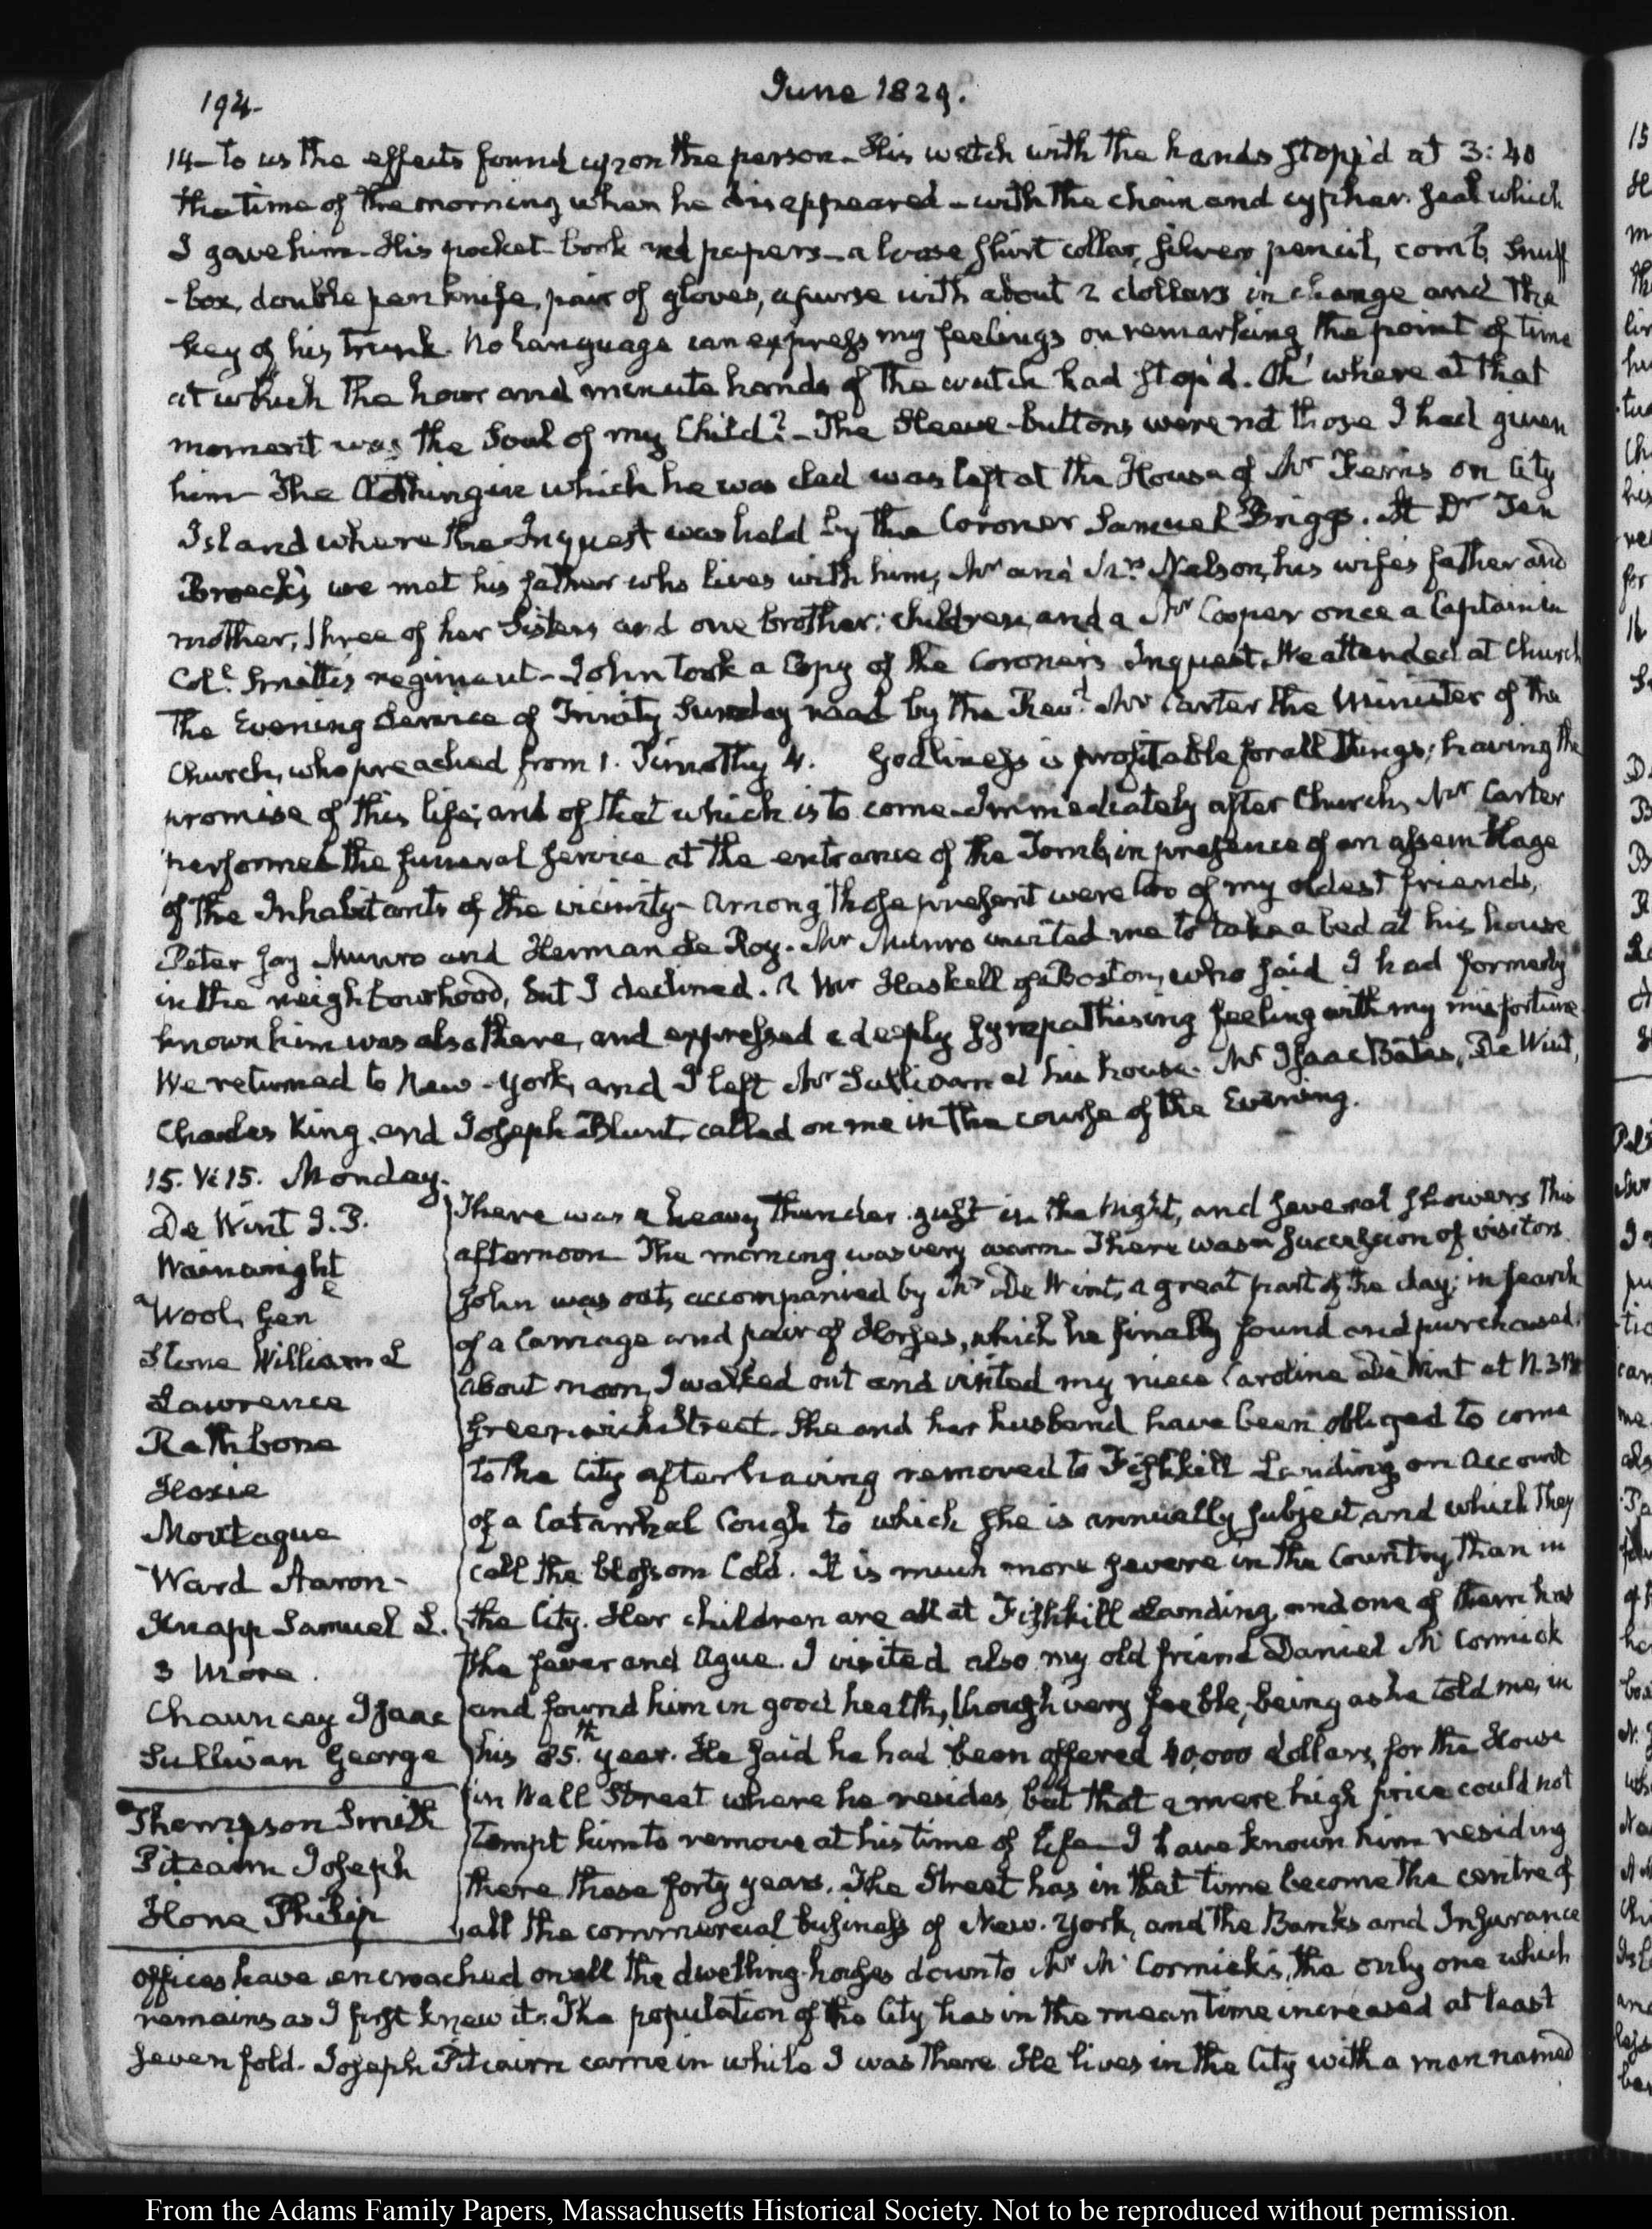 194.
June 1829.
14— to us the effects found upon the person— His watch with the hands stopp'd at 3:40
the time of the morning when he disappeared— with the chain and cypher seal which
I gave him— His pocket-book and papers— a loose shirt collar, silver pencil, comb, snuff
-box, double penknife, pair of gloves, a purse with about 2 dollars in change and the
key of his trunk. No language can express my feelings on remarking the point of time
at which the hour and minute hands of the watch had stop'd. Oh! where at that
moment was the Soul of my Child?— The Sleeve-buttons were not those I had given
him— The Clothing in which he was clad was left at the House of Mr Ferris on City
Island where the Inquest was held by the Coroner Samuel Briggs. At Dr Ten
Broeck's we met his father who lives with him, Mr and Mrs Nelson, his wife's father and
mother, three of her Sisters and one brother; children, and a Mr Cooper once a Captain in
Coll. Smith's regiment— John took a Copy of the Coroner's Inquest. We attended at Church
the Evening Service of Trinity Sunday read by the Revd. Mr Carter the Minister of the
Church, who preached from 1. Timothy 4. Godliness is profitable for all things; having the
promise of this life; and of that which is to come— Immediately after Church, Mr Carter
performed the funeral service at the entrance of the Tomb, in presence of an assemblage
of the Inhabitants of the vicinity— Among those present were two of my oldest friends,
Peter Jay Munro and Herman Le Roy. Mr Munro invited me to take a bed at his house
in the neighbourhood, but I declined. A Mr Haskell of Boston, who said I had formerly
known him was also there, and expressed a deeply sympathising feeling with my misfortune.
We returned to New-York, and I left Mr Sullivan at his house. Mr Isaac Bates, De Wint,
Charles King, and Joseph Blunt, called on me in the course of the Evening.
15. VI:15. Monday.
De Wint J. P.
Wainwright
Wool, Gen
Stone William L
Lawrence
Rathbone
Hoxie
Montague
Ward Aaron—
Knapp Samuel L.
3 More.
Chauncey Isaac
Sullivan George
Thompson Smith
Pitcairn Joseph
Hone Philip
There was a heavy thunder gust in the Night, and several showers this
afternoon— The morning was very warm— There was a succession of visitors.
John was out, accompanied by Mr De Wint, a great part of the day; in search
of a Carriage and pair of Horses, which he finally found and purchased.
About noon, I walked out and visited my niece Caroline De Wint at N.
Greenwich Street. She and her husband have been obliged to come
to the City after having removed to Fishkill Landing, on account
of a Catarrhal Cough to which she is annually subject, and which they
call the blossom Cold. It is much more severe in the Country than in
the City. Her children are all at Fishkill Landing, and one of them has
the fever and Ague. I visited also my old friend Daniel Mc Cormick
and found him in good health, though very feeble, being as he told me, in
his 85.th year. He said he had been offered 40,000 dollars, for the House
in Wall Street where he resides, but that a mere high price could not
tempt him to remove at his time of life— I have known him residing
there these forty years. The Street has in that time become the centre of
all the commercial business of New-York, and the Banks and Insurance
offices have encroached on all the dwelling-houses down to Mr Mc Cormick's, the only one which
remains as I first knew it. The population of the City has in the mean time increased at least
seven fold. Joseph Pitcairn came in while I was there. He lives in the City with a man named
From the Adams Family Papers, Massachusetts Historical Society. Not to be reproduced without permission.